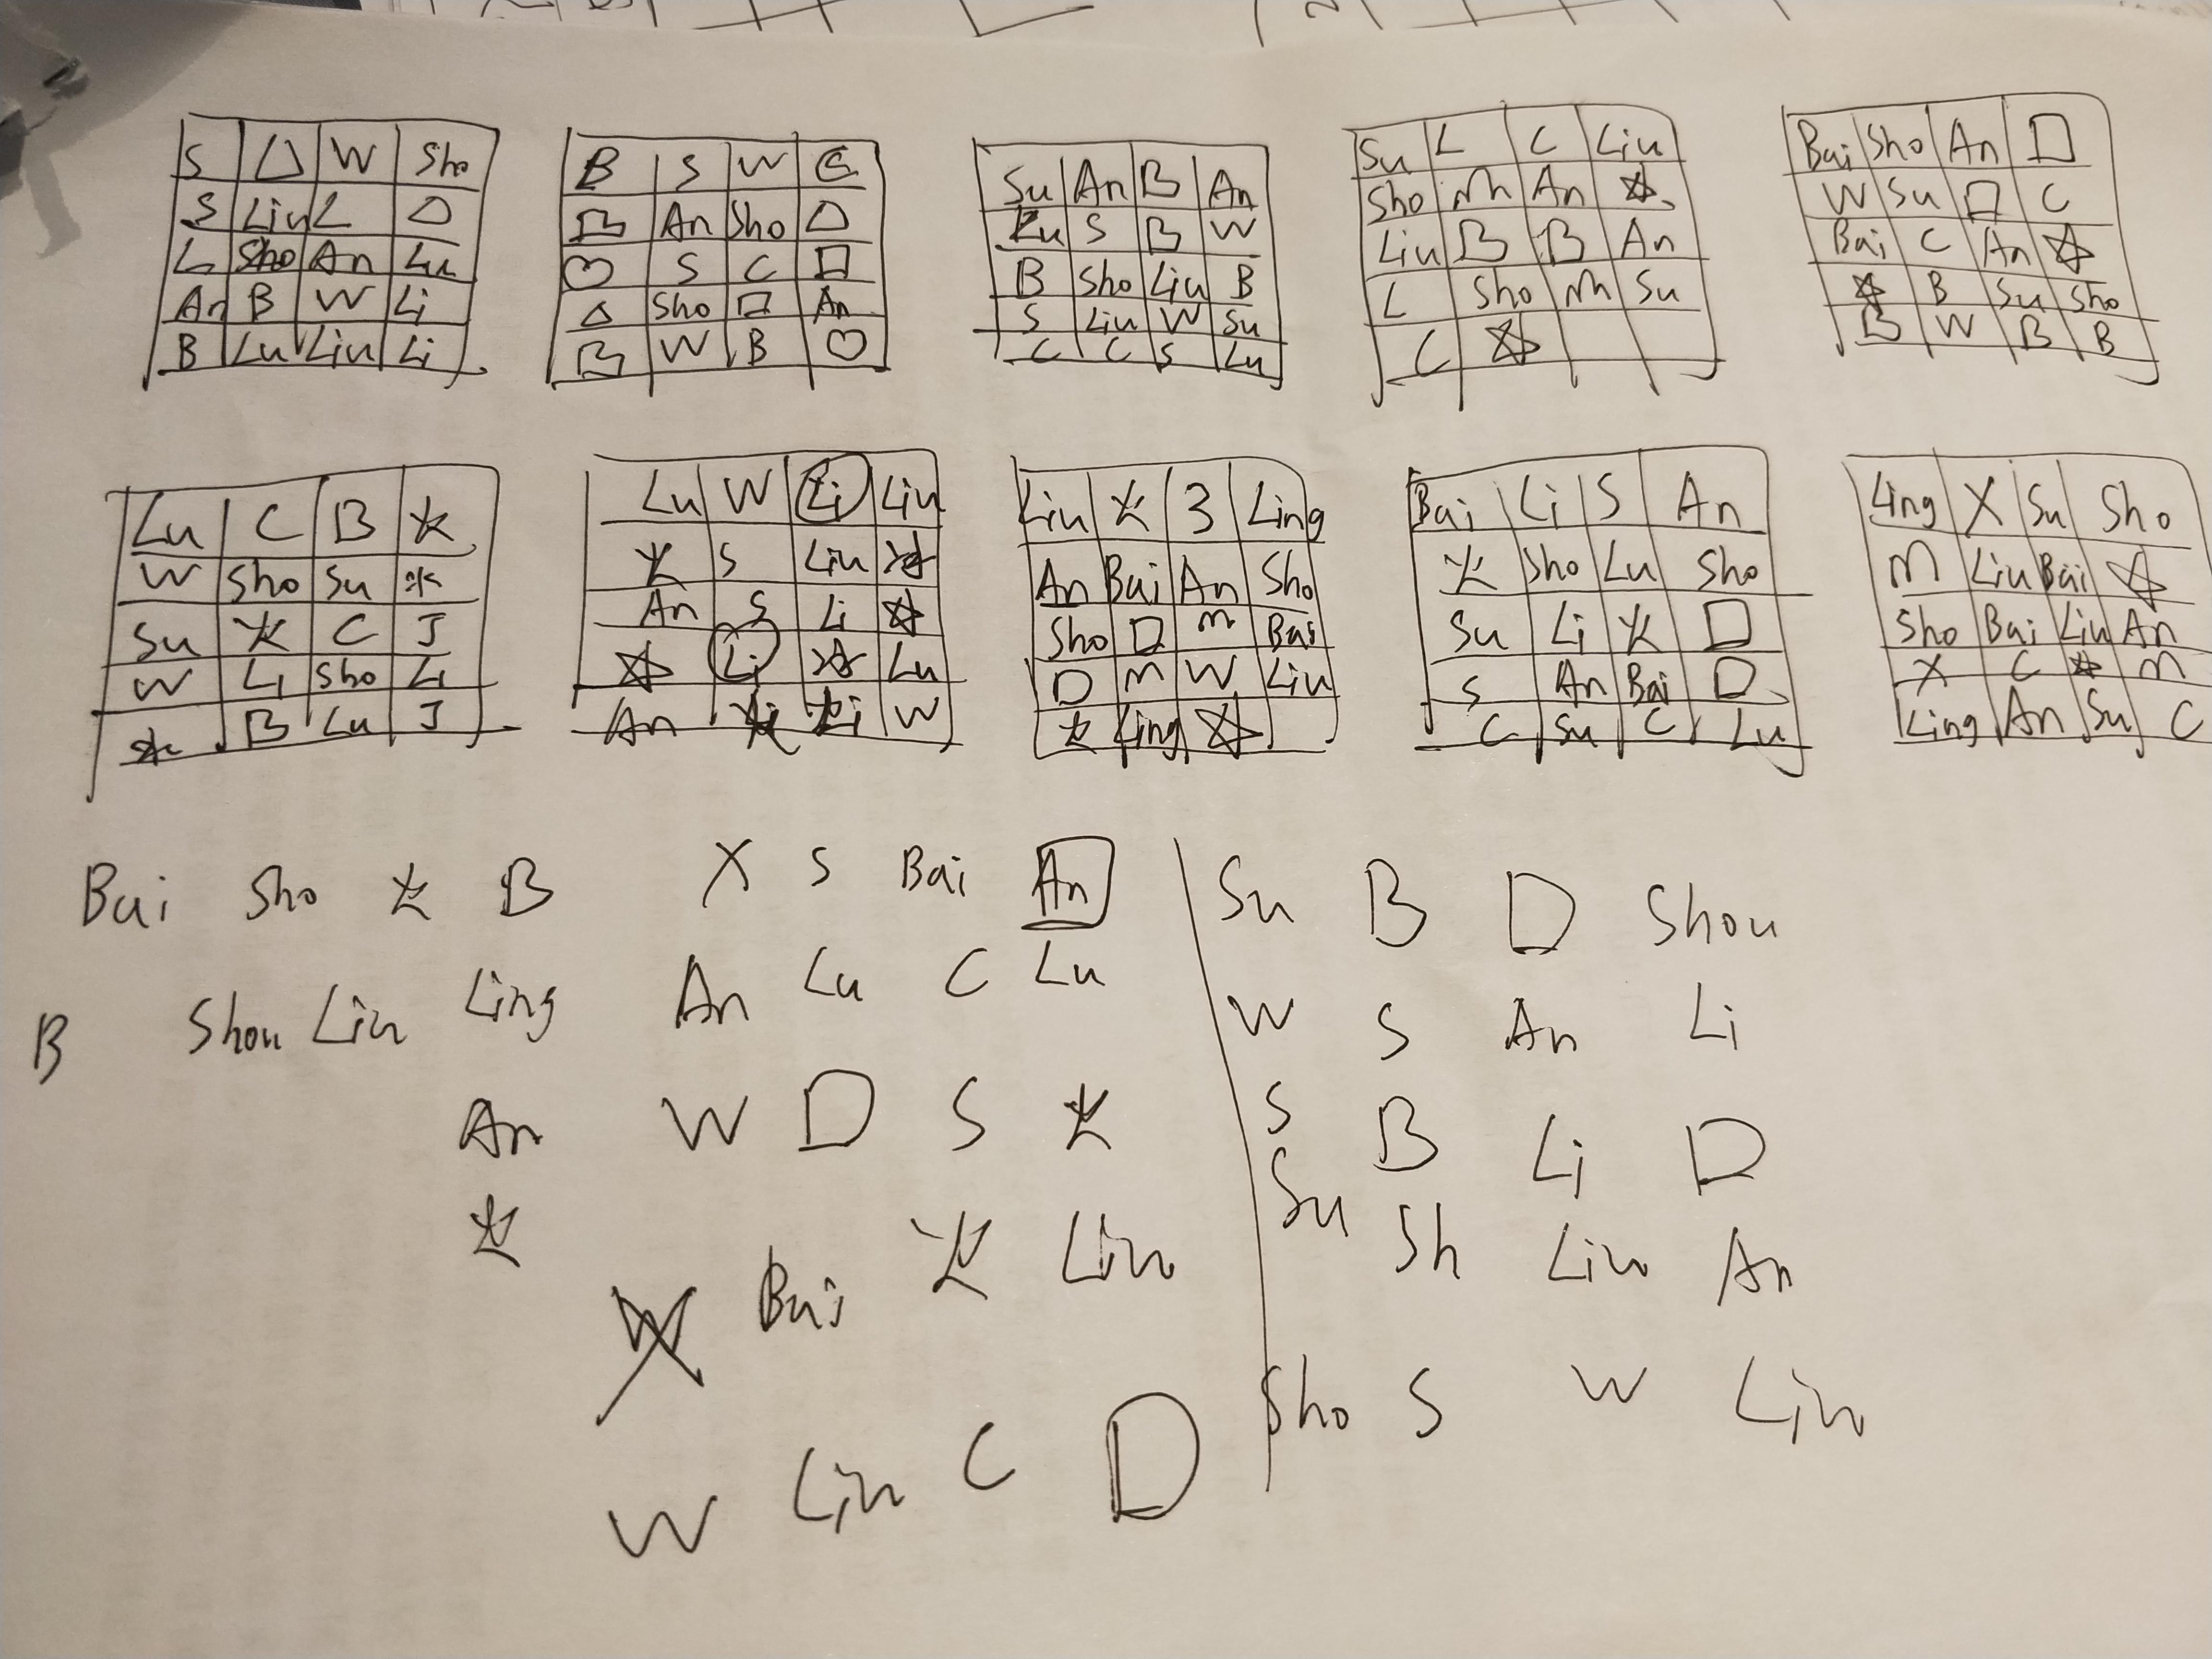 S △ W Sho
S Liu L △
L Sho An Lu
An B W Li
B Lu Liu Li
B S W C
B An Sho △
♡ S C □
△ Sho □ An
B W B ♡
Su An B An
Lu S B W
B Sho Liu B
S Liu W Su
C C S Lu
Su L C Liu
Sho m An ☆
Liu B B An
L Sho m Su
C ☆
Bai Sho An □
W Su □ C
Bai C An ☆
☆ B Su Sho
B W B B
Lu C B
W Sho Su
Su C J
W Li Sho Li
B Lu J
Lu W Li Liu
S Liu ☆
An S Li ☆
☆ Li ☆ Lu
An Li W
Liu 3 Ling
An Bai An Sho
Sho D m Bai
D m W Liu
Ling ☆
Bai Li S An
Sho Lu Sho
Su Li D
S An Bai D
C Su C Lu
Ling X Su Sho
M Liu Bai ☆
Sho Bai Liu An
X C ☆ m
Ling An Su C
Bai Sho B X S Bai An
B Shou Liu Ling An Lu C Lu
An W D S
Bai Liu
W Liu C D
Su B D Shou
W S An Li
S B Li D
Su Sh Liu An
Sho S W Liu